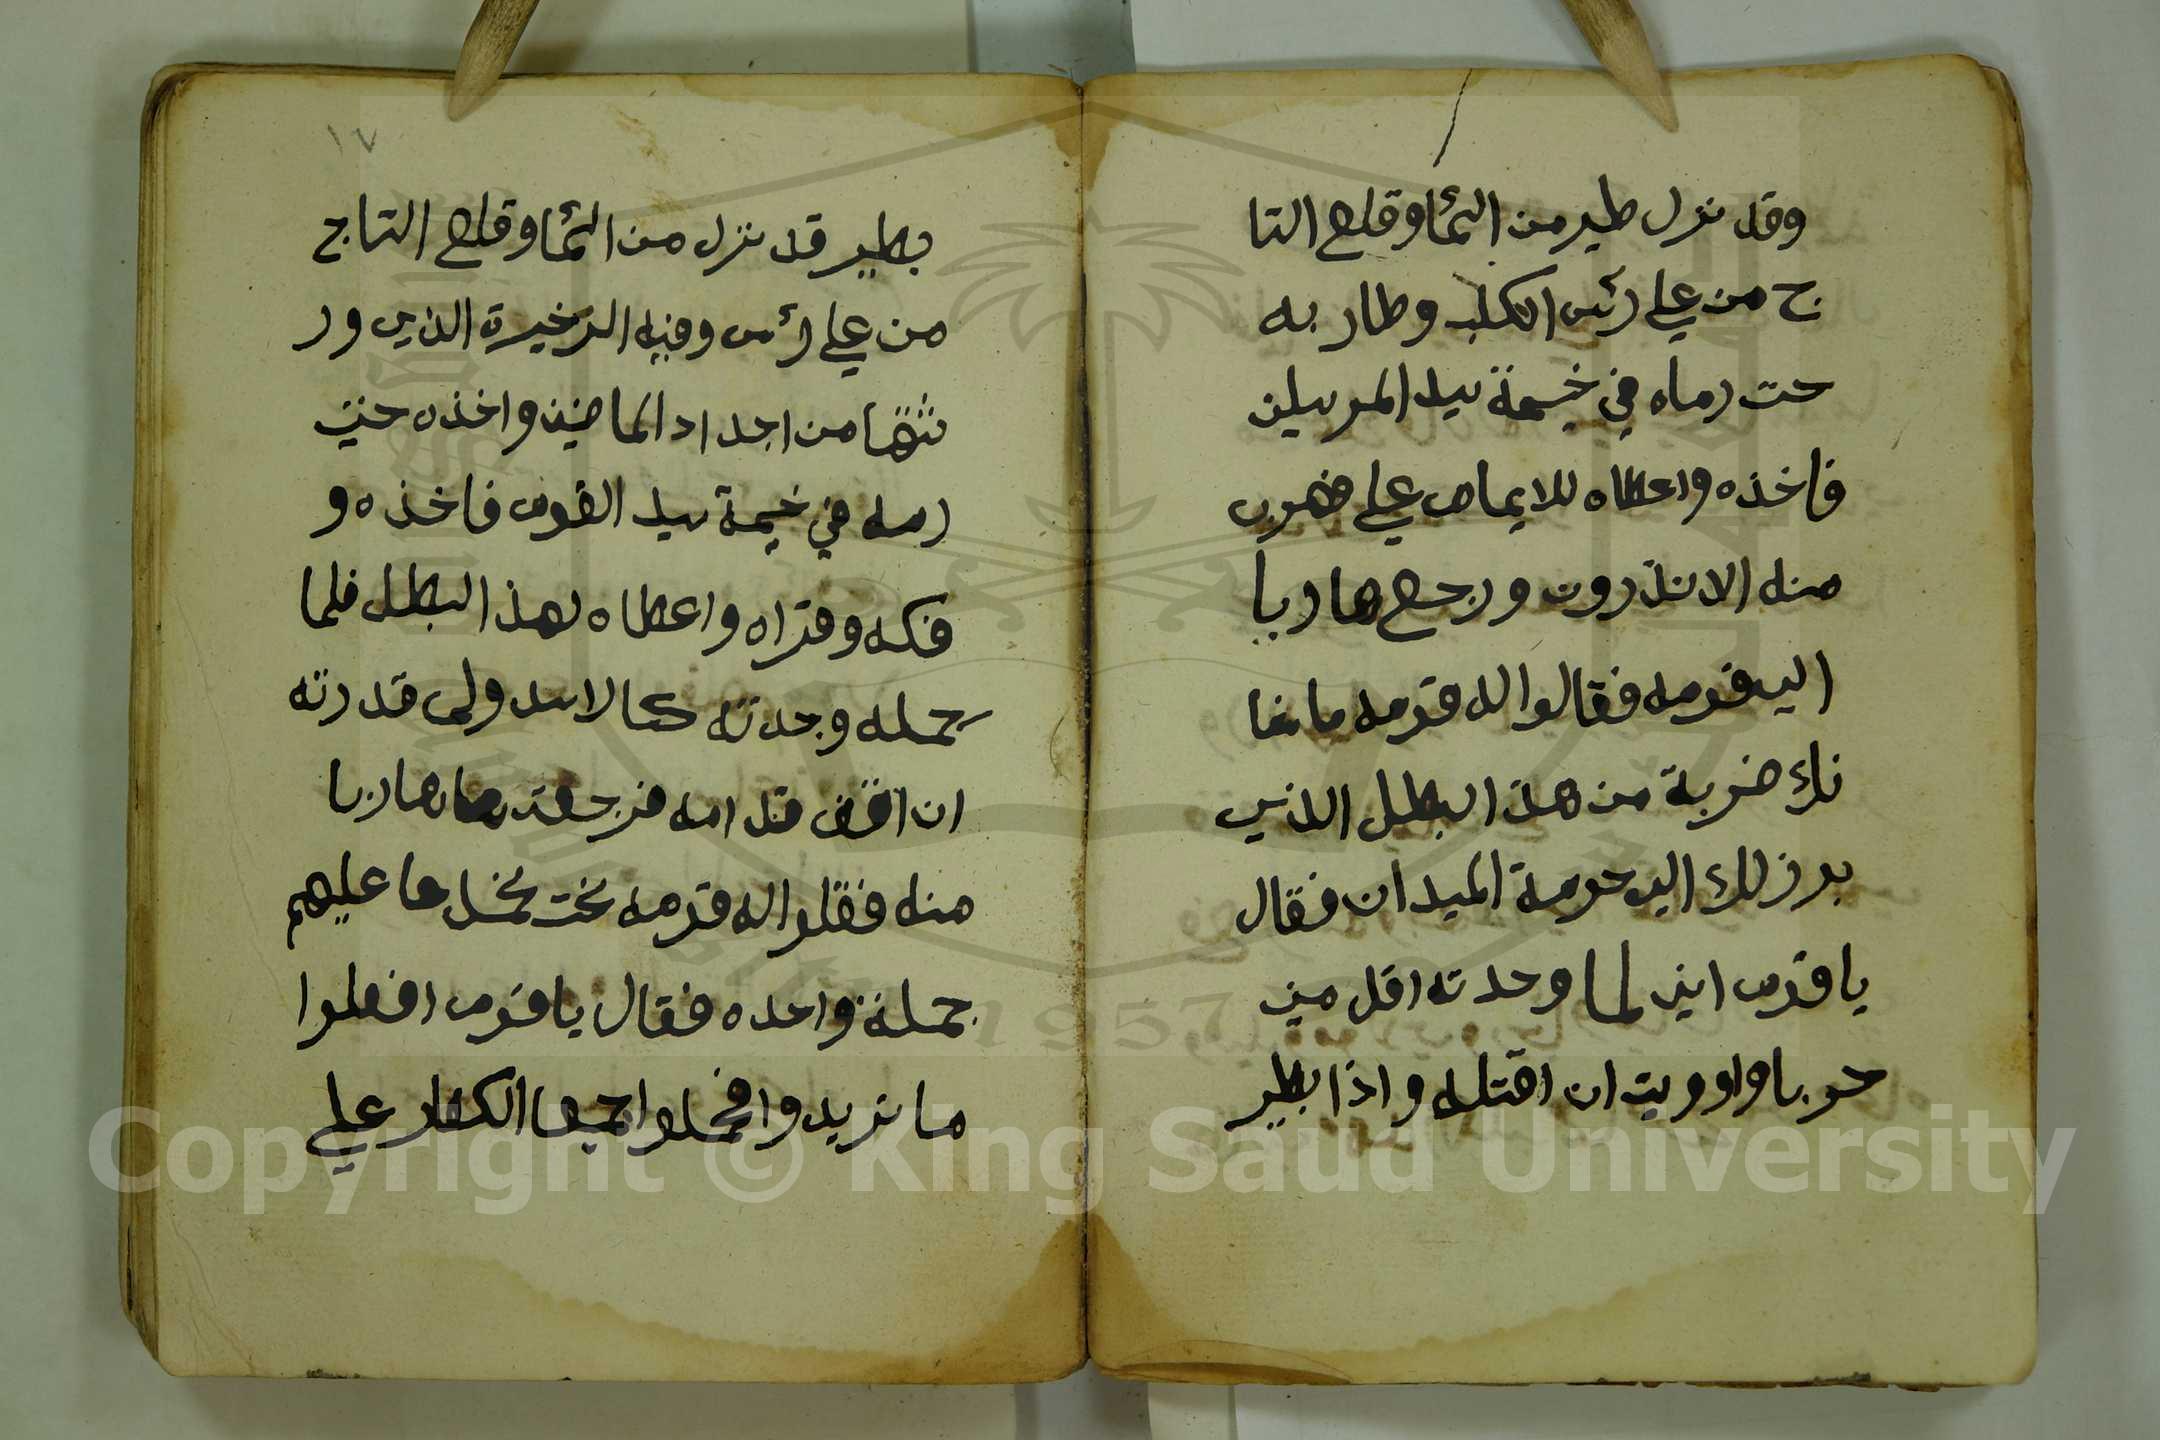 وقد نزل طير من السما وقلع التا
ج من علي رئس الكلب وطار به
حت رماه في خيمة سيد المرسلين
فاخذه واعطاه للايمام علي فهرب
منه الاندرون ورجع هاربا
الي قومه فقالوا له قومه ما خا
نك ضربة من هذ البطل الذي
برز لك الي حومة الميدان فقال
يا قوم اني لما وجدته اقل مني
حربا واوريت ان اقتله واذا بطير
١٧
بطير قد نزل من السما وقلع التاج
من علي رئس وفيه الزخيرة الذي ور
ثتها من اجداد الماضين واخذه حتي
رمه في خيمة سيد القوم فاخذه و
فكه وقراه واعطاه لهذ البطل فلما
حمله وجدته كالاسد ولي قدرته
ان اقف قدامه فرجعت هاربا
منه فقلوا له قومه نحن نحمل عليهم
حملة واحده فقال يا قوم افعلوا
ما تريدوا فحملوا جميعا الكفار علي
Copyright © King Saud University
1957